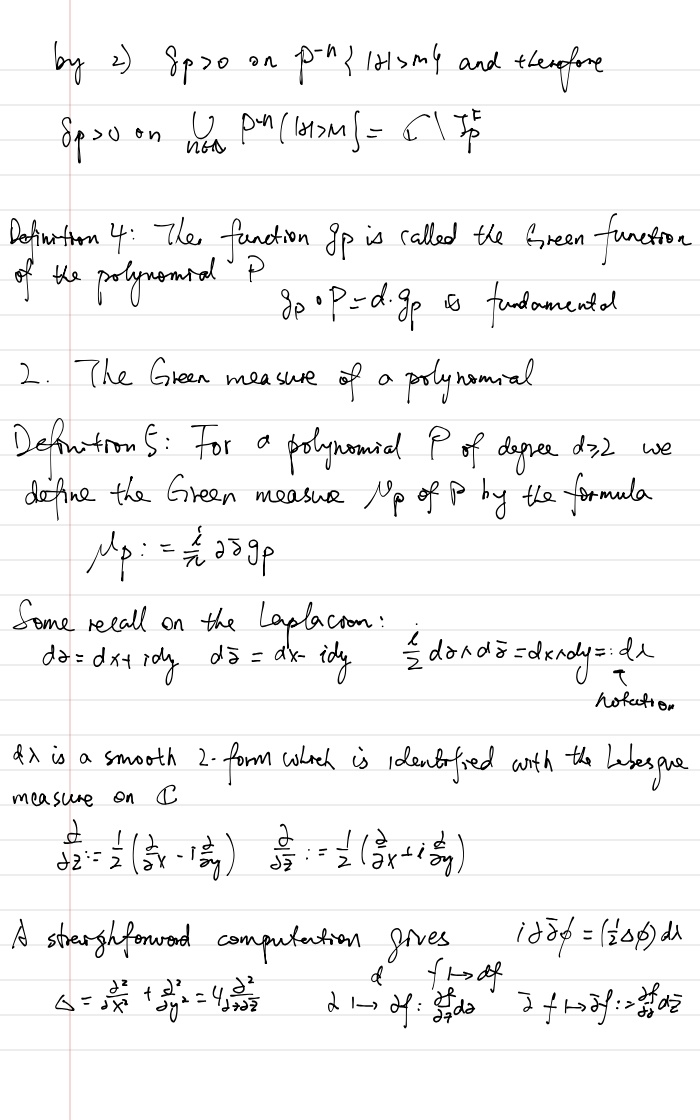 by 2) g_p > 0 on P^{-n}{|z|>M} and therefore
g_p > 0 on ⋃_{n∈ℕ} P^{-n}{|z|>M} = ℂ \ J_P^F
Definition 4: The function g_p is called the Green function
of the polynomial P
g_p ∘ P = d · g_p is fundamental
2. The Green measure of a polynomial
Definition 5: For a polynomial P of degree d ≥ 2 we
define the Green measure μ_p of P by the formula
μ_p := i/π ∂∂̄ g_p
Some recall on the Laplacian:
dz = dx + idy dz̄ = dx - idy i/2 dz ∧ dz̄ = dx∧dy =: dλ
↑
notation
dλ is a smooth 2-form which is identified with the Lebesgue
measure on ℂ
∂/∂z := 1/2 (∂/∂x - i ∂/∂y) ∂/∂z̄ := 1/2 (∂/∂x + i ∂/∂y)
A straighforward computation gives i∂∂̄φ = (1/2 Δφ) dλ
d f ↦ df
Δ = ∂²/∂x² + ∂²/∂y² = 4 ∂²/∂z∂z̄ ∂ ↦ ∂f : ∂f/∂z dz ∂̄ f ↦ ∂̄f := ∂f/∂z̄ dz̄